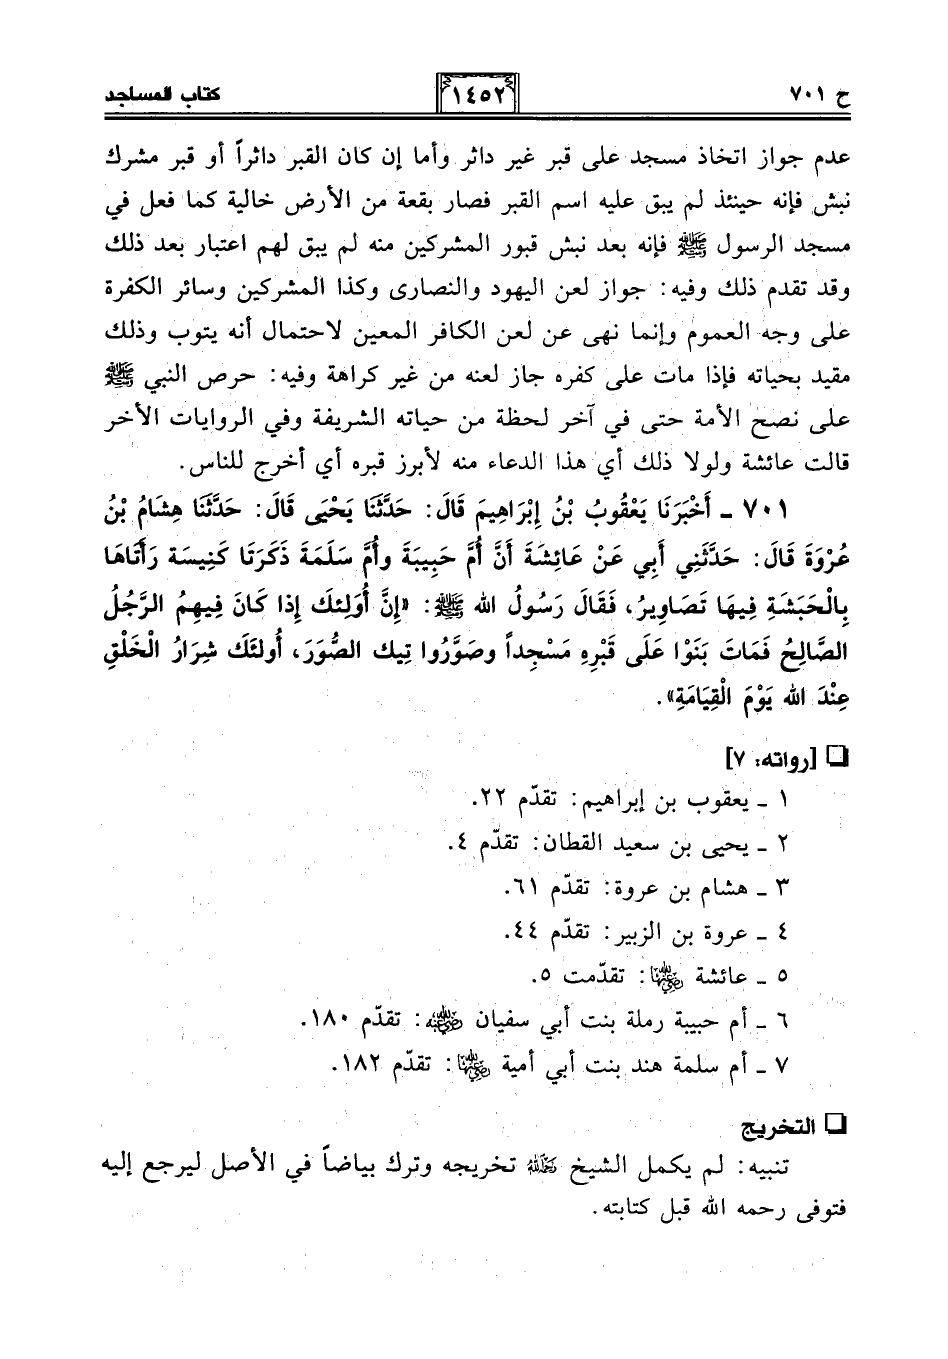 ح ٧٠١ ١٤٥٢ كتاب المساجد
عدم جواز اتخاذ مسجد على قبر غير داثر وأما إن كان القبر داثراً أو قبر مشرك
نبش فإنه حينئذ لم يبق عليه اسم القبر فصار بقعة من الأرض خالية كما فعل في
مسجد الرسول ﷺ فإنه بعد نبش قبور المشركين منه لم يبق لهم اعتبار بعد ذلك
وقد تقدم ذلك وفيه: جواز لعن اليهود والنصارى وكذا المشركين وسائر الكفرة
على وجه العموم وإنما نهى عن لعن الكافر المعين لاحتمال أنه يتوب وذلك
مقيد بحياته فإذا مات على كفره جاز لعنه من غير كراهة وفيه: حرص النبي ﷺ
على نصح الأمة حتى في آخر لحظة من حياته الشريفة وفي الروايات الأخر
قالت عائشة ولولا ذلك أي هذا الدعاء منه لأبرز قبره أي أخرج للناس.
٧٠١ ـ أَخْبَرَنَا يَعْقُوبُ بْنُ إِبْرَاهِيمَ قَالَ: حَدَّثَنَا يَحْيَى قَالَ: حَدَّثَنَا هِشَامُ بْنُ
عُرْوَةَ قَالَ: حَدَّثَنِي أَبِي عَنْ عَائِشَةَ أَنَّ أُمَّ حَبِيبَةَ وأُمَّ سَلَمَةَ ذَكَرَتَا كَنِيسَة رَأَتَاهَا
بِالْحَبَشَةِ فِيهَا تَصَاوِيرُ، فَقَالَ رَسُولُ الله ﷺ: «إِنَّ أُولئِكَ إِذا كَانَ فِيهِمُ الرَّجُلُ
الصَّالِحُ فَمَاتَ بَنَوْا عَلَى قَبْرِهِ مَسْجِداً وصَوَّرُوا تِيكَ الصُّوَرَ، أُولئَكَ شِرَارُ الْخَلْقِ
عِنْدَ الله يَوْمَ الْقِيَامَةِ».
[رواته: ٧]
١ ـ يعقوب بن إبراهيم: تقدّم ٢٢.
٢ ـ يحيى بن سعيد القطان: تقدّم ٤.
٣ ـ هشام بن عروة: تقدّم ٦١.
٤ ـ عروة بن الزبير: تقدّم ٤٤.
٥ ـ عائشة رضي الله عنها: تقدّمت ٥.
٦ ـ أم حبيبة رملة بنت أبي سفيان رضي الله عنه: تقدّم ١٨٠.
٧ ـ أم سلمة هند بنت أبي أمية رضي الله عنها: تقدّم ١٨٢.
التخريج
تنبيه: لم يكمل الشيخ رحمه الله تخريجه وترك بياضاً في الأصل ليرجع إليه
فتوفى رحمه الله قبل كتابته.